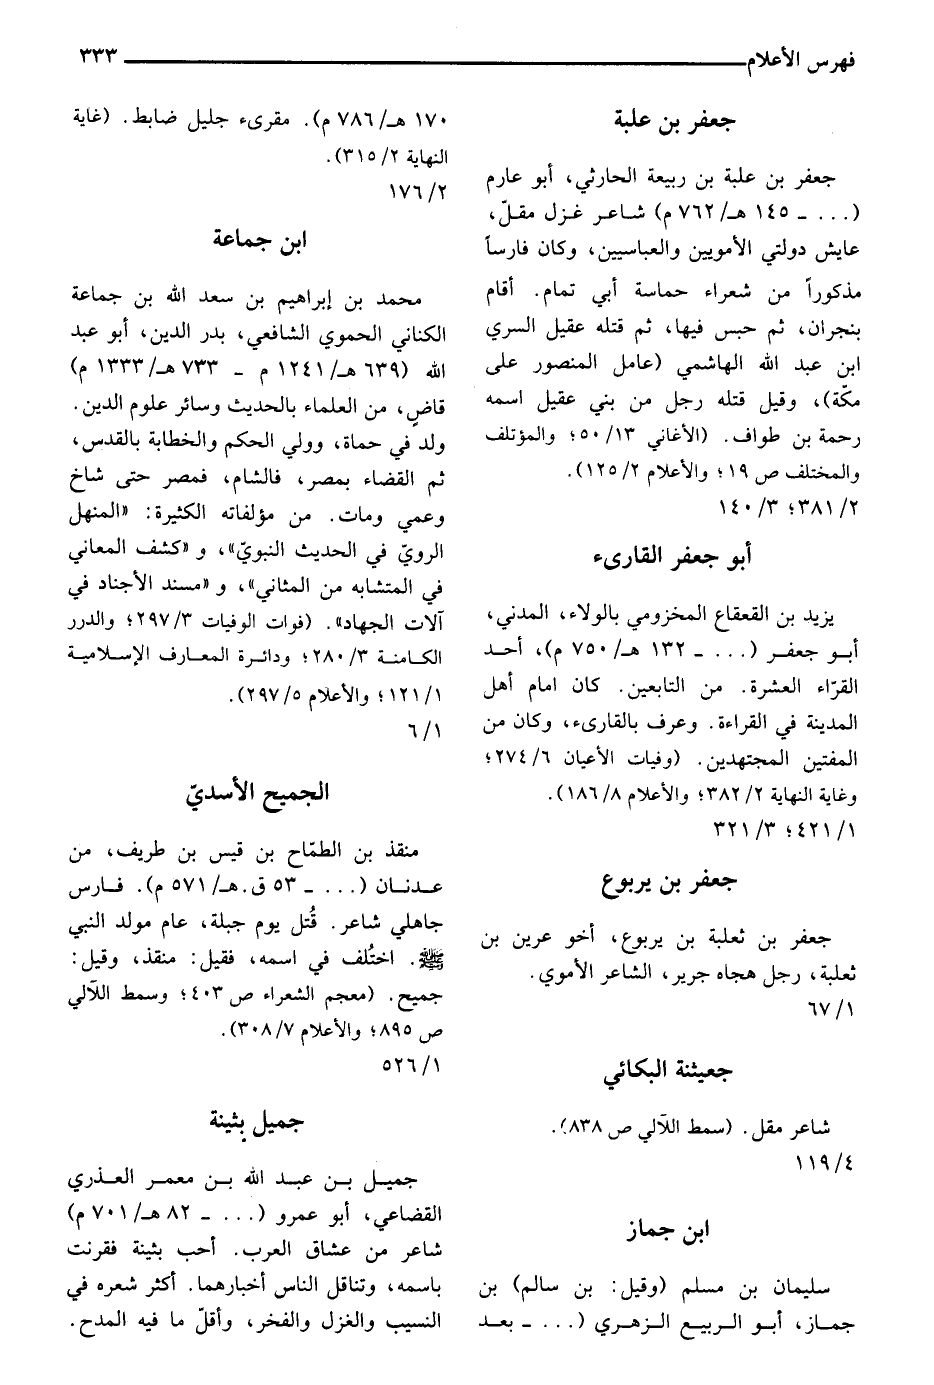 فهرس الأعلام ٣٣٣
جعفر بن علبة
جعفر بن علبة بن ربيعة الحارثي، أبو عارم
(... ـ ١٤٥ هـ/ ٧٦٢ م) شاعر غزل مقلّ،
عايش دولتي الأمويين والعباسيين، وكان فارساً
مذكوراً من شعراء حماسة أبي تمام. أقام
بنجران، ثم حبس فيها، ثم قتله عقيل السري
ابن عبد الله الهاشمي (عامل المنصور على
مكّة)، وقيل قتله رجل من بني عقيل اسمه
رحمة بن طواف. (الأغاني ١٣/ ٥٠؛ والمؤتلف
والمختلف ص ١٩؛ والأعلام ٢/ ١٢٥).
٢/ ٣٨١؛ ٣/ ١٤٠
أبو جعفر القارىء
يزيد بن القعقاع المخزومي بالولاء، المدني،
أبو جعفر (... ـ ١٣٢ هـ/ ٧٥٠ م)، أحد
القرّاء العشرة. من التابعين. كان امام أهل
المدينة في القراءة. وعرف بالقارىء، وكان من
المفتين المجتهدين. (وفيات الأعيان ٦/ ٢٧٤؛
وغاية النهاية ٢/ ٣٨٢؛ والأعلام ٨/ ١٨٦).
١/ ٤٢١؛ ٣/ ٣٢١
جعفر بن يربوع
جعفر بن ثعلبة بن يربوع، أخو عرين بن
ثعلبة، رجل هجاه جرير، الشاعر الأموي.
١/ ٦٧
جعيثنة البكائي
شاعر مقل. (سمط اللآلي ص ٨٣٨).
٤/ ١١٩
ابن جماز
سليمان بن مسلم (وقيل: بن سالم) بن
جماز، أبو الربيع الزهري (... ـ بعد
١٧٠ هـ/ ٧٨٦ م). مقرىء جليل ضابط. (غاية
النهاية ٢/ ٣١٥).
٢/ ١٧٦
ابن جماعة
محمد بن إبراهيم بن سعد الله بن جماعة
الكناني الحموي الشافعي، بدر الدين، أبو عبد
الله (٦٣٩ هـ/ ١٢٤١ م ـ ٧٣٣ هـ/ ١٣٣٣ م)
قاضٍ، من العلماء بالحديث وسائر علوم الدين.
ولد في حماة، وولي الحكم والخطابة بالقدس،
ثم القضاء بمصر، فالشام، فمصر حتى شاخ
وعمي ومات. من مؤلفاته الكثيرة: «المنهل
الرويّ في الحديث النبويّ»، و «كشف المعاني
في المتشابه من المثاني»، و «مسند الأجناد في
آلات الجهاد». (فوات الوفيات ٣/ ٢٩٧؛ والدرر
الكامنة ٣/ ٢٨٠؛ ودائرة المعارف الإسلامية
١/ ١٢١؛ والأعلام ٥/ ٢٩٧).
١/ ٦
الجميح الأسديّ
منقذ بن الطمّاح بن قيس بن طريف، من
عدنان (... ـ ٥٣ ق.هـ/ ٥٧١ م). فارس
جاهلي شاعر. قُتل يوم جبلة، عام مولد النبي
ﷺ. اختُلف في اسمه، فقيل: منقذ، وقيل:
جميح. (معجم الشعراء ص ٤٠٣؛ وسمط اللآلي
ص ٨٩٥؛ والأعلام ٧/ ٣٠٨).
١/ ٥٢٦
جميل بثينة
جميل بن عبد الله بن معمر العذري
القضاعي، أبو عمرو (... ـ ٨٢ هـ/ ٧٠١ م)
شاعر من عشاق العرب. أحب بثينة فقرنت
باسمه، وتناقل الناس أخبارهما. أكثر شعره في
النسيب والغزل والفخر، وأقلّ ما فيه المدح.